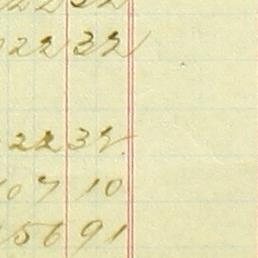 22 32
22 32
22 32
07 10
56 91